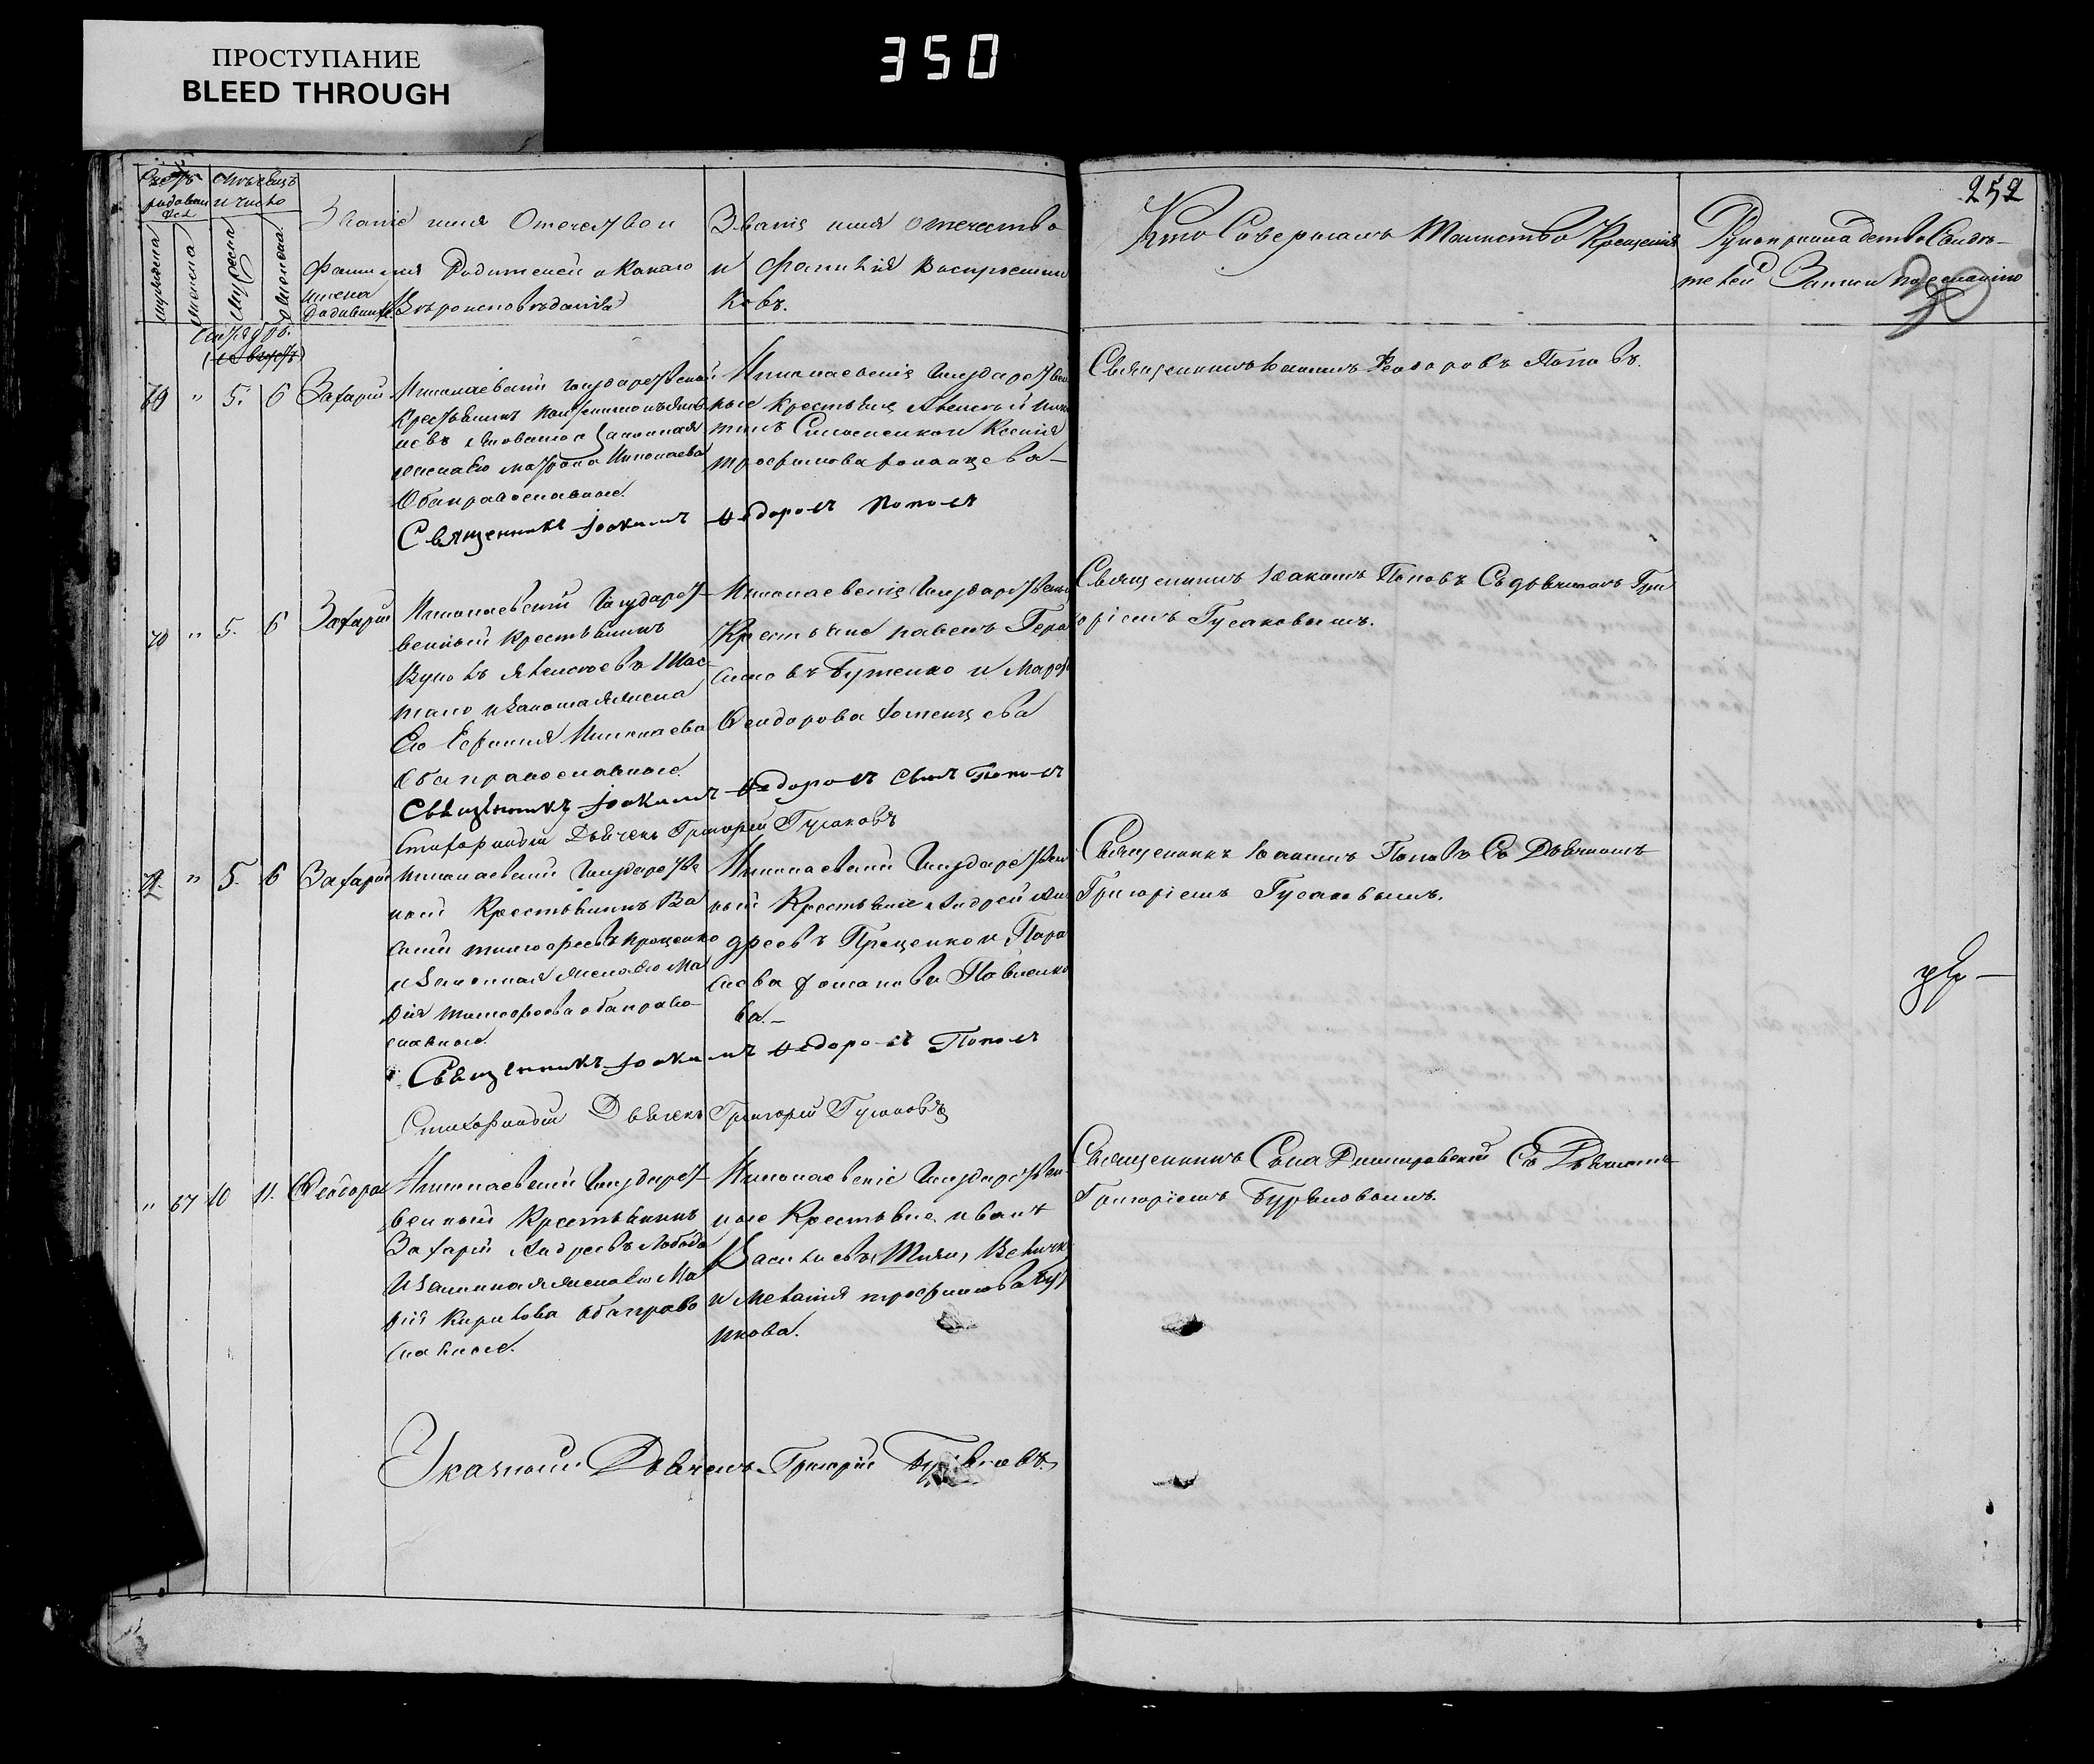 ПРОСТУПАНИЕ
BLEED THROUGH
350
252
Счетъ
родовши
хся
Мѣсецъ
и число
мужеска
женска
рожденія
крещенія
Имена
Родившихъ
Званіе имя Отечество и
Фамилия Родителей и Какаго
Вѣроисповѣданія
Званіе имя отечество
и Фамилія Воспріемни
ковъ.
Кто Совершалъ Таинство Крещенія
Рукоприкладство Свидѣ-
телей Записи по желанію
Сентябрь
(Августъ)
69 " 5. 6 Захарій
Николаевскій государственой
Крестьянинъ
законная
жена его Матрона Николаева
Оба православные.
Николаевскіе Государствен
ные Крестьяне Алексей
Ксенія
Трофимова
Священникъ Іоакимъ Феодоровъ Поповъ.
Священникъ Іоакимъ Федоровъ Поповъ
70 " 5. 6 Захарій
Николаевскій Государст
венный Крестьянинъ
Вуколъ Алексѣевъ Шас
тало и Законная жена
Его Евфимія Николаева
Оба православные.
Николаевскіе Государствен
Крестьяне павелъ Гера
симовъ Бутенко и Марѳа
Феодорова
Священникъ Іоакимъ Поповъ Съ дьячкомъ Гри
горіемъ Гусаковымъ.
Священникъ Іоакимъ Федоровъ сынъ Поповъ
Стихарный Дьячекъ Григорій Гусаковъ
71. " 5. 6 Захарій
Николаевскій Государстве
ный Крестьянинъ Ва
силій Тимофеевъ Проценко
и Законная жена его Ма
рія Тимофеева оба право
славные.
Николаевскій Государствен
ный Крестьяне Андрей Ан
дреевъ Проценко и Пара
скева Романова Павленко
ва.-
Священникъ Іоакимъ Поповъ Съ Дьячкомъ
Григоріемъ Гусаковымъ.
Священникъ Іоакимъ Федоровъ Поповъ
Стихарный Дьячекъ Григорій Гусаковъ
" 67 10 11. Феодора
Николаевскій Государст
венный Крестьянинъ
Захарій Андреевъ Лобода
И Законная жена его Ма
рія Кирилова Оба право
славные.
Николаевскіе Государствен
ные Крестьяне иванъ
Васильевъ
и Меланія трофимова
Священникъ Села Димитровскій Съ Дьячкомъ
Григоріемъ Буряновымъ.
Указной Дьячекъ Григорій